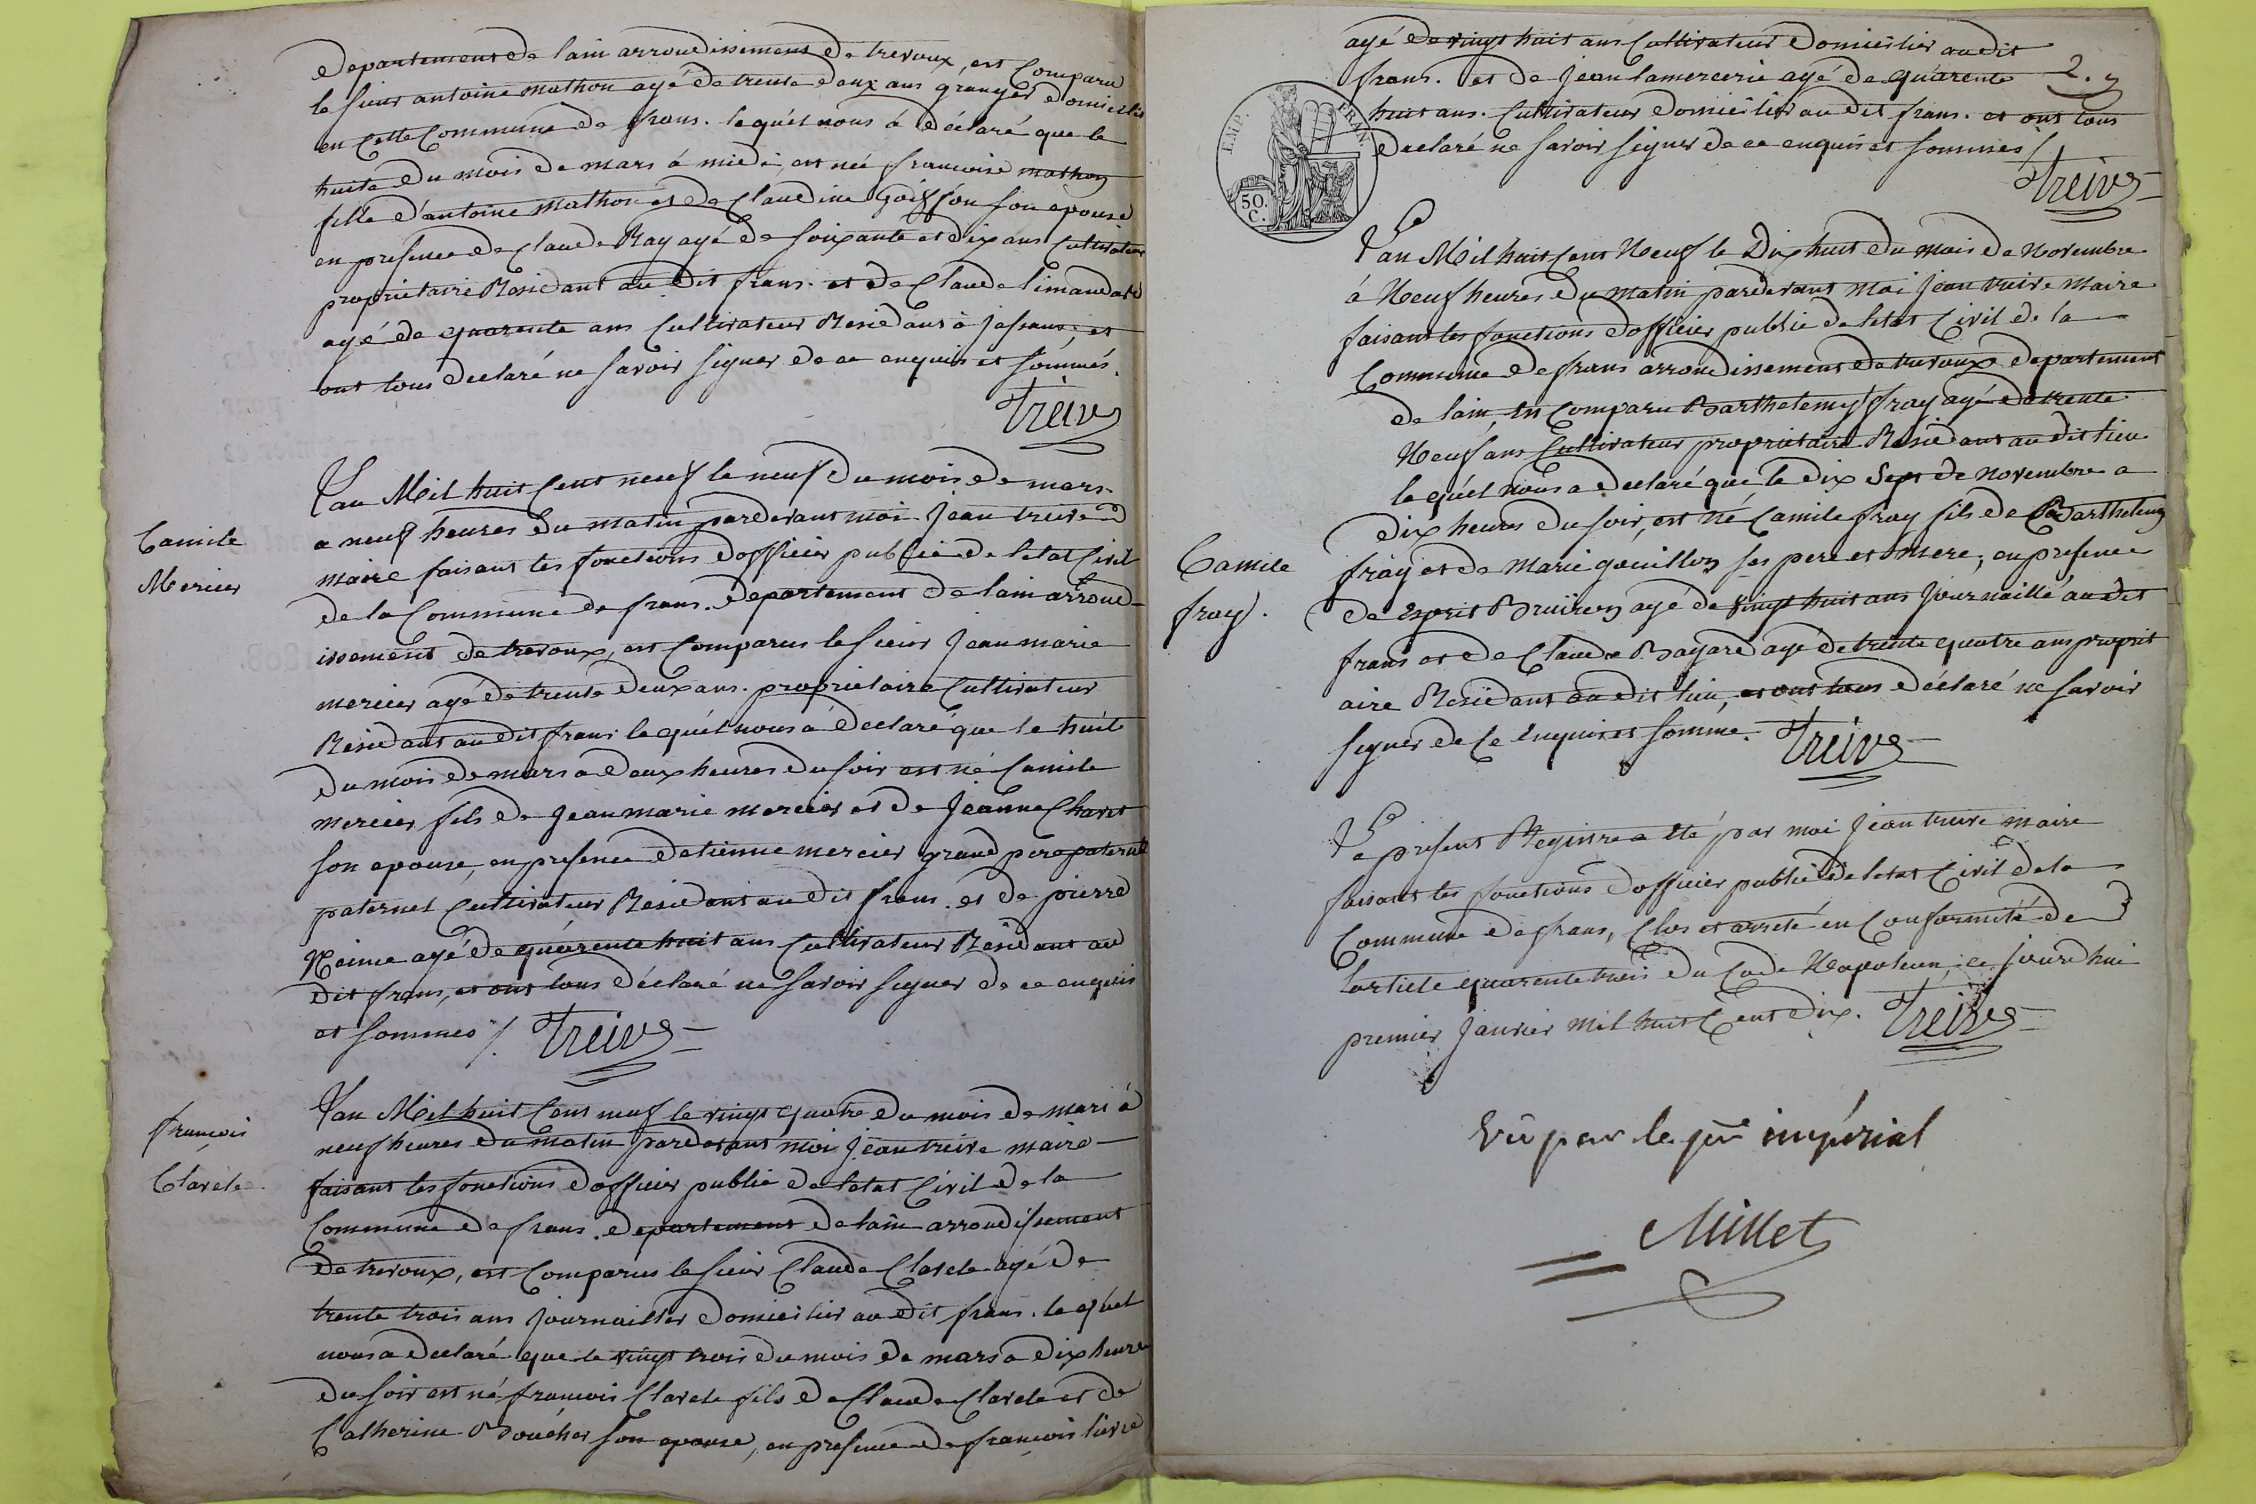 departement de lain arrondissement de trevoux, est Comparu
le sieur antoine mathon agé de trente deux ans granger domicilié
en Cette Commune de frans. lequél nous á déclaré que le
huite du mois de mars á midi, est née francoise mathon
fille d'antoine mathon et de Claudine son épouse
en presence de Claude Ray agé de soixante et dix ans Cultivateur
proprietaire Residant au dit frans. et de Claude limandas
agé de quarente ans Cultivateur Residant à jassans, et
ont tous declaré ne savoir signer de ce enquis et sommés.
Treive
Lan Mil huit Cent neuf le neuf du mois de mars
a neuf heures du matin pardevant moi Jean treive
Camile
Mercier
maire faisant les fonctions dofficier public de letat Civil
de la Commune de frans. departement de lain arrond-
issement de trevoux, est Comparus le sieur Jean marie
mercier agé de trente deux ans. proprietaire Cultivateur
Residant au dit frans lequél nous á declaré que le huite
du mois de mars a deux heures du soir est né Camile
mercier fils de Jean marie mercier et de Jeanne Charet
son epouse, en presence detienne mercier grand pere paternel
paternel Cultivateur Residant au dit frans. et de pierre
agé de quárente huit ans Cultivateur Residant au
dit frans, et ont tous déclaré ne savoir signer de ce enquis
et sommés /. Treive
Lan Mil huit Cent neuf le vingt quatre du mois de mars á
neuf heures du matin pardevant moi Jean treive maire
françois
Clarele
faisant les fonctions dofficier public de letat Civil de la
Commune de frans. departement de lain arrondissement
de trevoux, est Comparus le sieur Claude Clarele agé de
trente trois ans journailler domicilier au dit frans. le quél
nous a declaré que le vingt trois du mois de mars a dix heure
du soir est né françois Clarele fils de Claude Clarele et de
Catherine Bouchér son epouse, en presence de françois livre
agé de vingt huit ans Cultivateur domicilier au dit
frans. et de Jean lamercerie agé de quárente
huit ans. Cultivateur domicilier au dit frans. et ont tous
declaré ne savoir signer de ce enquis et sommés /.
2.
TIMP. FRAN.
50.
C.
Treive
Lan Mil huit Cent Neuf le Dix huit du mois de Novembre
à Neuf heures du matin pardevant moi Jean treive maire
faisant les fonctions dofficier public de letat Civil de la
Commune de frans arrondissement de trevoux departement
de lain, est Comparu Barthelemy fray agé de trente
Neuf ans Cultivateur proprietaire Residant au dit lieu
lequél nous a declaré que le dix Sept de novembre a
dix heures du soir, est né Camile fray fils de Barthelemy
Camile
fray.
fray et de Marie gouillon ses pere et mere, en presence
de Esprit agé de vingt huit ans journaillé au dit
frans et de Claude Bayard agé de trente quatre ans propriet
aire Residant au dit lieu, et ont tous déclaré ne savoir
signer de Ce Enquis et sommé. Treive
Le present Registre a été par moi Jean treive maire
faisant les fonctions dofficier public de letat Civil de la
Commune de frans, Clos et arreté en Conformité de
lartiele quarente trois du Code Napoleon, ce jourdhui
premier Janvier mil huit Cent Dix. Treive
Vû par le pr impérial
Millet